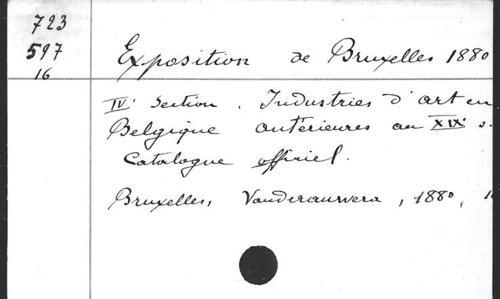 723
597
16
Exposition de Bruxelles 1880
IVe Section. Industries d'art en
Belgique antérieures au XIXe s.
Catalogue officiel.
Bruxelles, Vanderauwera, 1880,